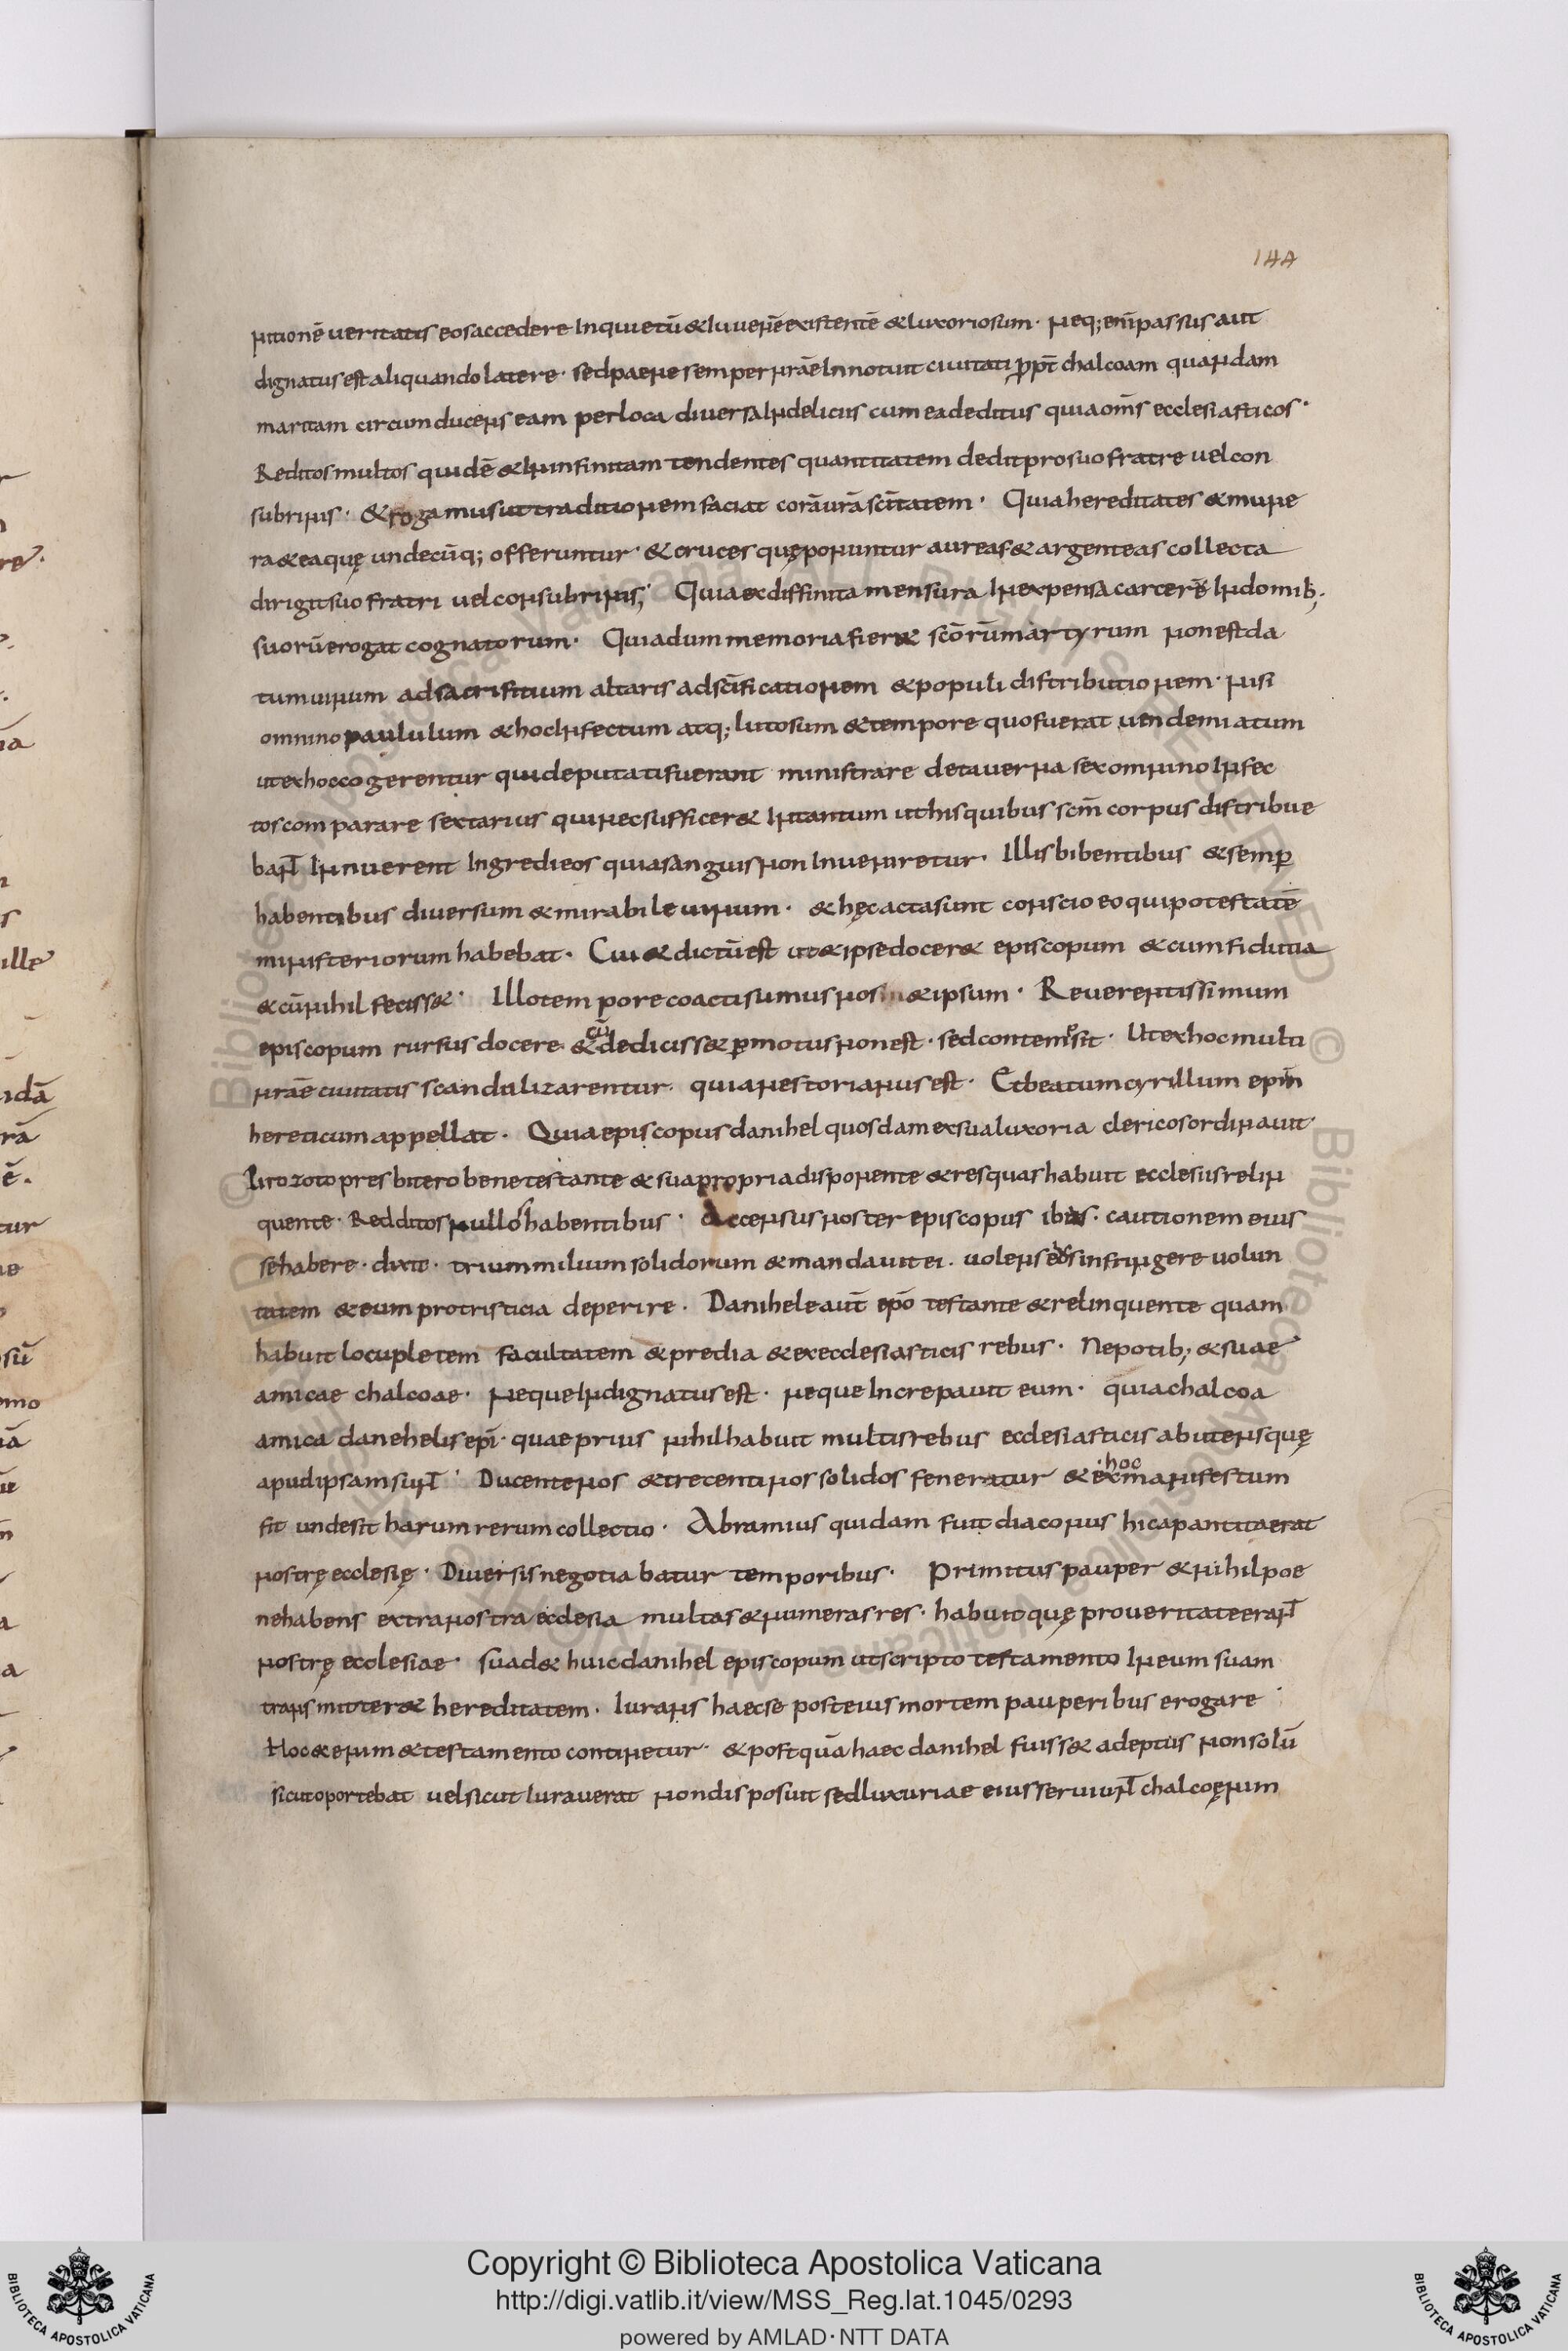 144
ntionē ueritatis eos accedere Inquietū & Iuuenē existentē & luxoriosum · neq; enī passus aut
dignatus est aliquando latere · sed paene semper nrāe Innotuit ciuitati ꝓpt̄ chalcoam quandam
maritam circumducens eam per loca diuersa In deliciis cum ea deditus quia om̄s ecclesiasticos ·
Reditos multos quidē & In infinitam tendentes quantitatem dedit pro suo fratre uel con
subrinis · & rogamus ut traditionem faciat corā urā sc̄itatem · Quia hereditates & mune
ra & ea quę undecūq; offeruntur · & cruces quę ponuntur aureas & argenteas collecta
dirigit suo fratri uel consubrinis; Quia ex diffinita mensura In expensa carceris In domib;
suorū erogat cognatorum · Quia dum memoria fier& sc̄orum martyrum non est da
tum uinum ad sacrifitium altaris ad sc̄ificationem & populi distributionem · nisi
omnino paululum & hoc Infectum atq; lutosum & tempore quo fuerat uendemiatum
ut ex hoc cogerentur qui deputati fuerant ministrare de tauerna sex omnino Infec
tos comparare sextarius qui nec sufficer& In tantum ut his quibus sc̄m corpus distribue
bant Innuerent Ingredi eos quia sanguis non Inueniretur · Illis bibentibus & semꝑ
habentibus diuersum & mirabile uinum · & hęc acta sunt conscio eo qui potestatē
ministeriorum habebat · Cui & dictū est ut & ipse docer& episcopum & cum fiditia
& cū nihil feciss& · Illo tempore coacti sumus nos & ipsum · Reuerentissimum
episcopum rursus docere & cū dediciss& ꝑmotus non est · sed contemsit · Ut ex hoc multi
nrāe ciuitatis scandalizarentur · quia nestorianus est · Et beatum cyrillum epm̄
hereticum appellat · Quia episcopus danihel quosdam ex sua luxoria clericos ordinauit ·
Iirozoto presbitero bene testante & sua propria disponente & res quas habuit ecclesiis relin
quente · Redditos nullos habentibus · Accensus noster episcopus ibas · cautionem eius
se habere · dixit · trium milium solidorum & mandauit ei · uolens eos infringere uolun
tatem & eum pro tristicia deperire · Danihele aut̄ epō testante & relinquente quam
habuit locupletem facultatem & predia & ex ecclesiasticis rebus · Nepotib; & suae
amicae chalcoae · neque Indignatus est · neque Increpauit eum · quia chalcoa
amica danehelis epī · quae prius nihil habuit multis rebus ecclesiasticis abutens quę
apud ipsam sunt · Ducentenos & trecentinos solidos feneratur & ex hoc manifestum
fit unde sit harum rerum collectio · Abramius quidam fuit diaconus hic apantita erat
nostrę ecclesię · Diuersis negotiabatur temporibus · Primitus pauper & nihil poe
ne habens extra nostra ecclesia multas & numeras res · habuit quę pro ueritate erant
nostrę ecclesiae · suad& huic danihel episcopum ut scripto testamento In eum suam
transmitter& hereditatem · Iurans haec se post eius mortem pauperibus erogare ·
Hoc & enim & testamento continetur · & postquā haec danihel fuiss& adeptus non solū
sicut oportebat uel sicut Iurauerat non disposuit sed luxuriae eius seruiunt chalcoę num
Copyright © Biblioteca Apostolica Vaticana
http://digi.vatlib.it/view/MSS_Reg.lat.1045/0293
powered by AMLAD · NTT DATA
BIBLIOTECA APOSTOLICA VATICANA
BIBLIOTECA APOSTOLICA VATICANA